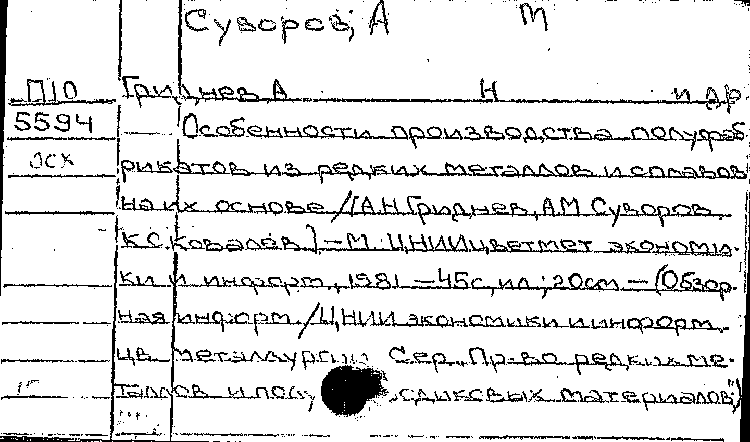 Суворов, А М
П10 Гриднев, А Н и др.
5594 Особенности производства полуфаб
оск рикатов из редких металлов и сплавов
на их основе /[А.Н.Гриднев, А.М.Суворов,
К.С.Ковалев.] – М. ЦНИИцветмет экономи-
ки и информ., 1981 – 45с, ил.; 20см – (Обзор-
ная информ. / ЦНИИ экономики и информ.
цв. металлургии Сер. "Пр-во редких ме-
таллов и материалов")